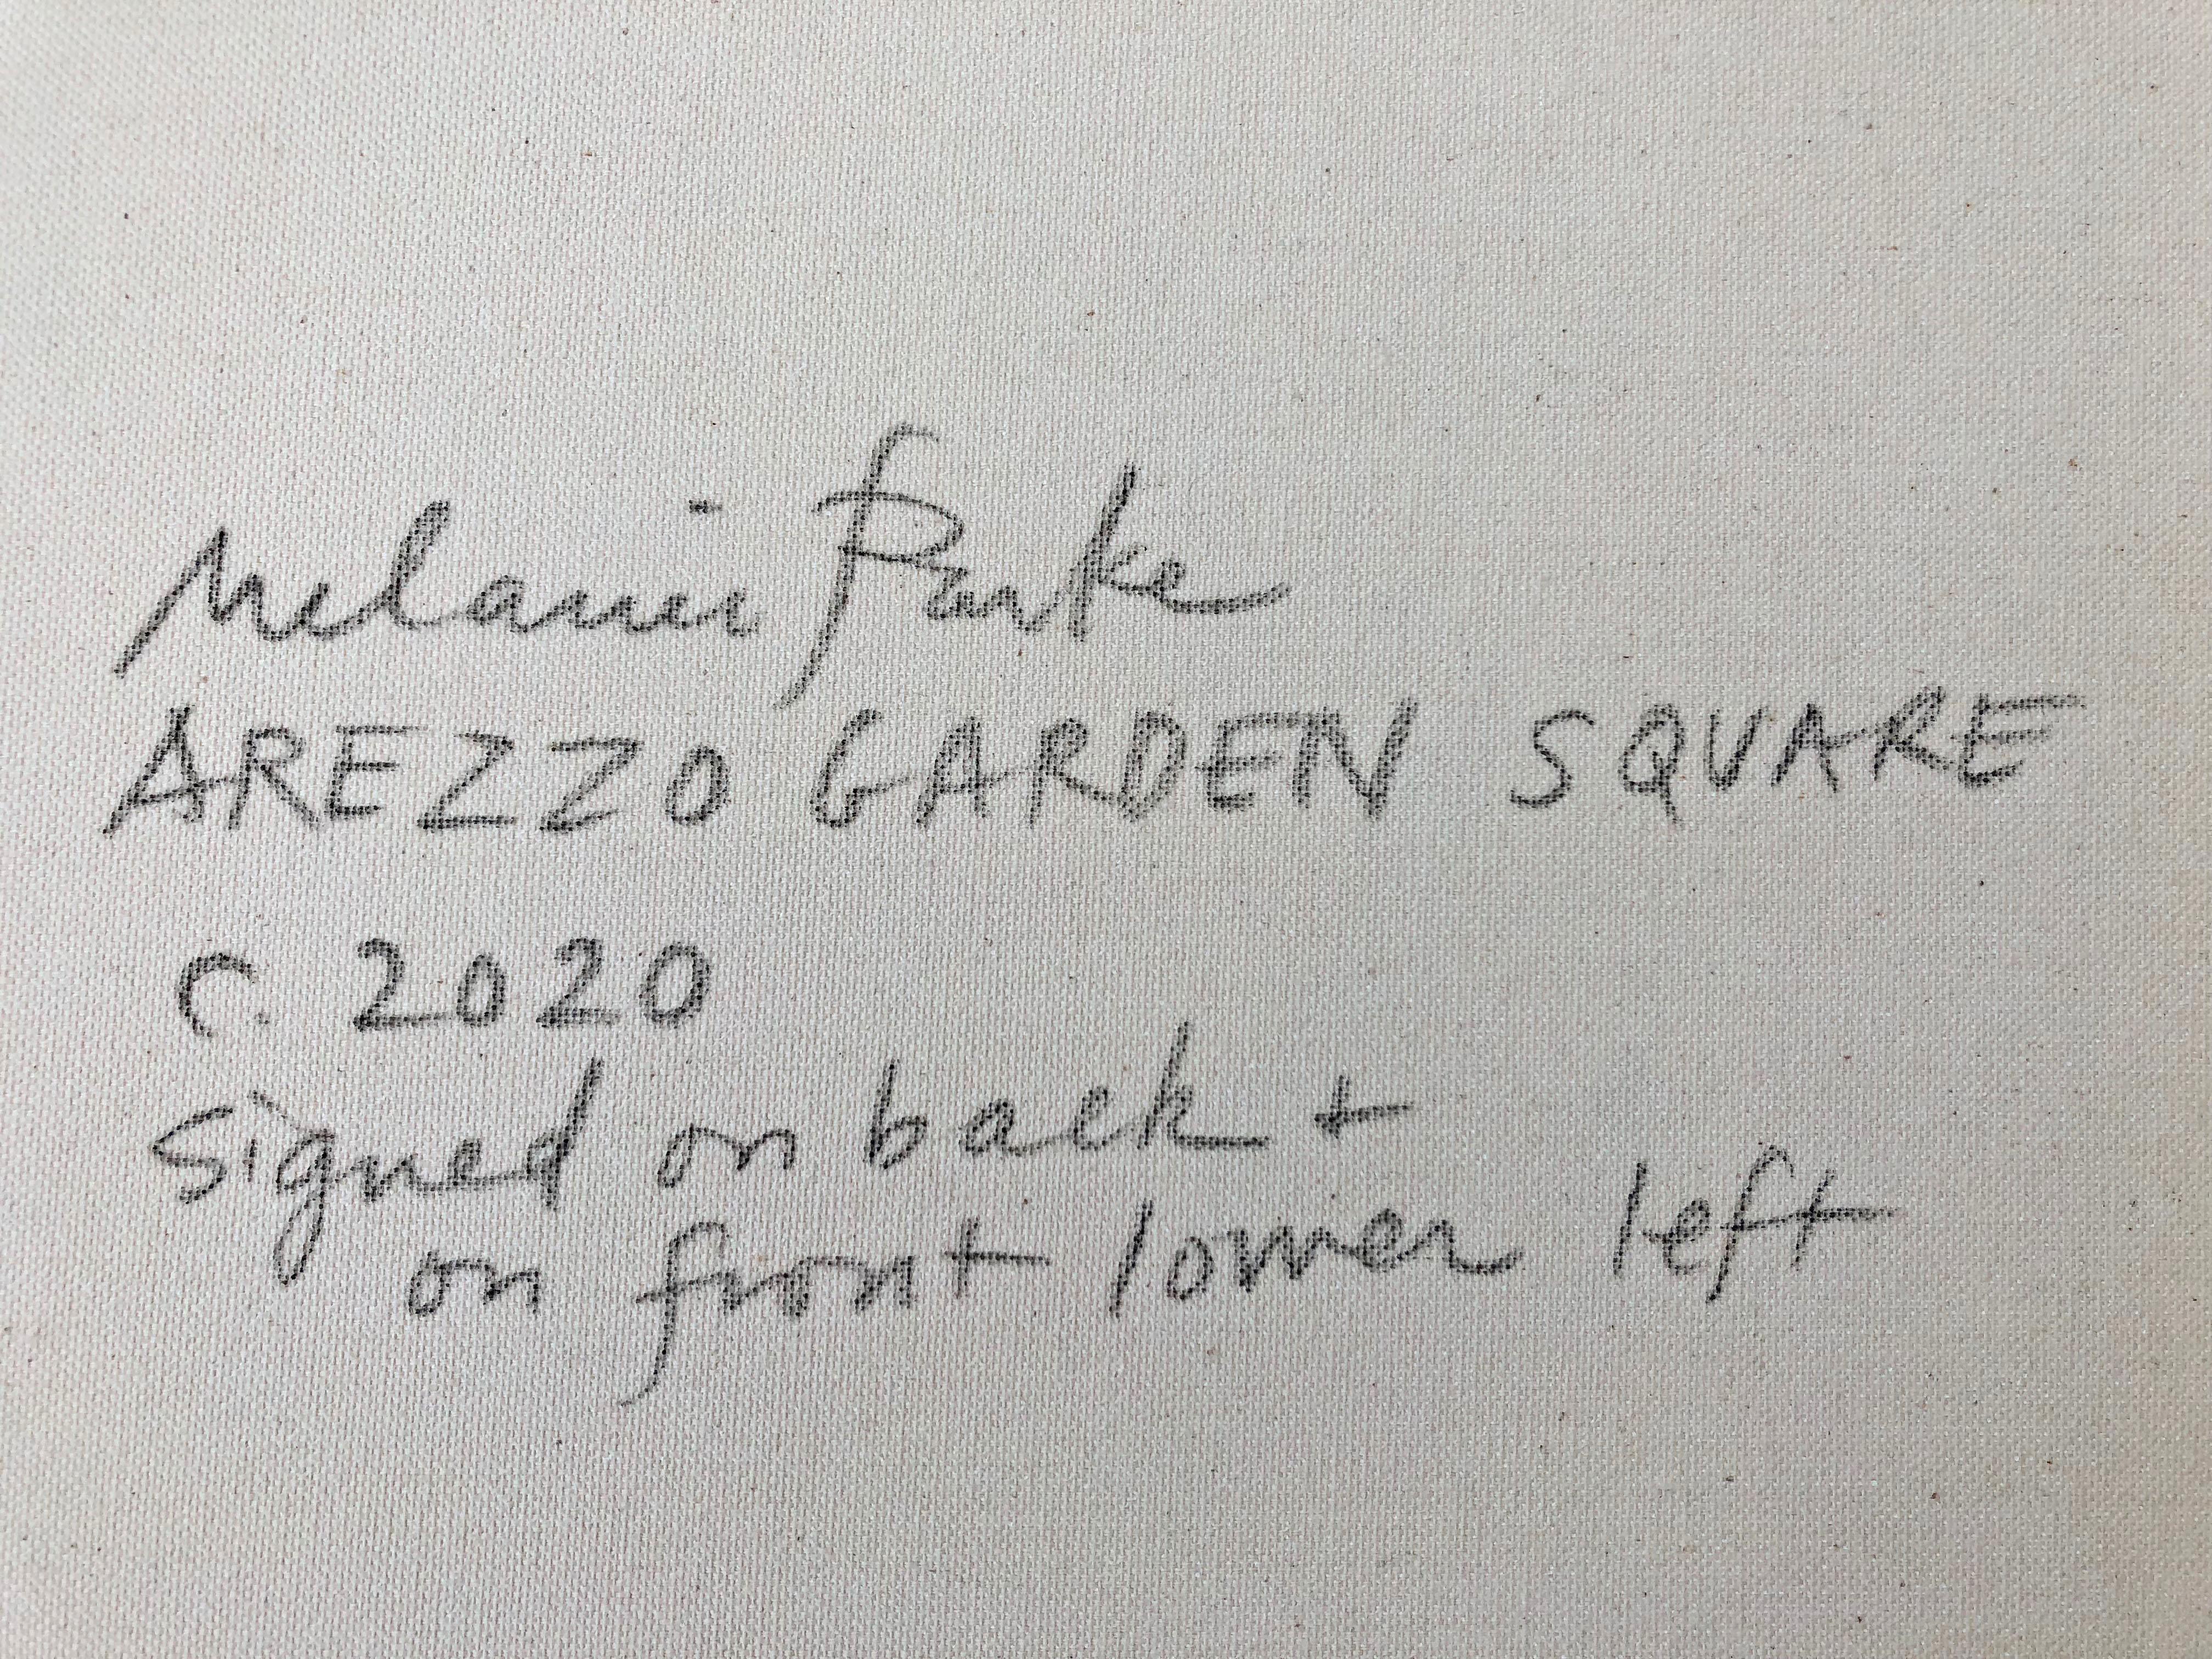 Melanie Parke
AREZZO GARDEN SQUARE
C. 2020
signed on back +
on front lower left